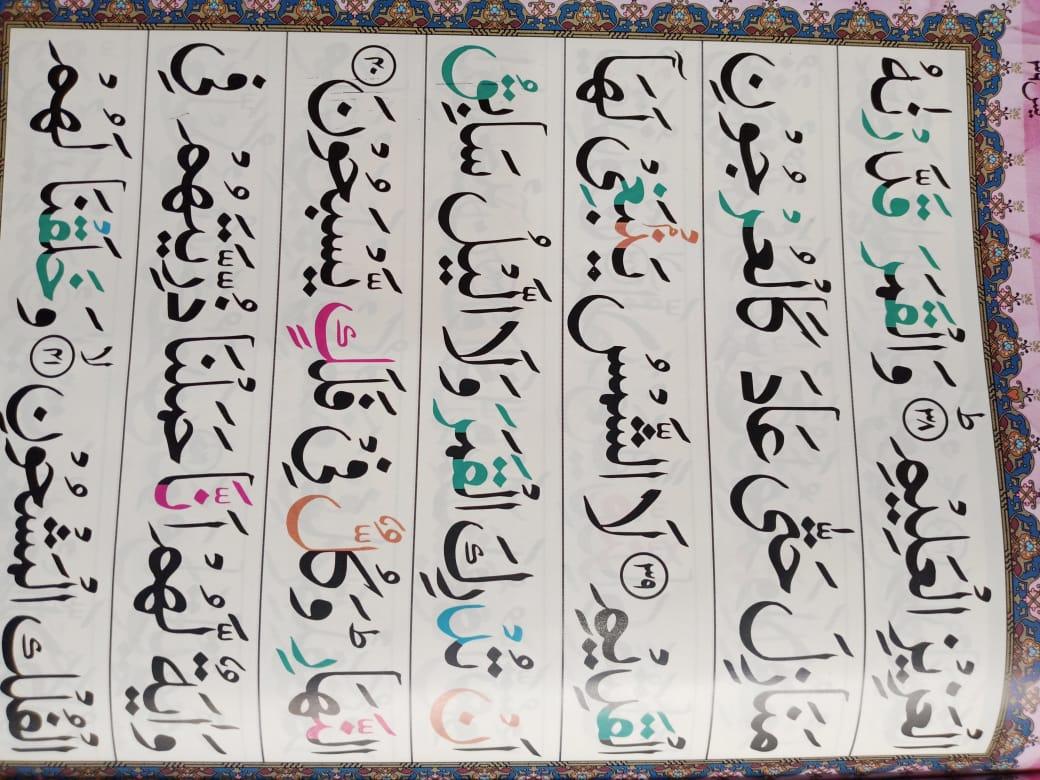 یٰسٓ ۳۶
الْعَزِیْزِ الْعَلِیْمِ ؕ۳۸ وَالْقَمَرَ قَدَّرْنٰهُ
مَنَازِلَ حَتّٰی عَادَ كَالْعُرْجُوْنِ
الْقَدِیْمِ ۳۹ لَا الشَّمْسُ یَنْۢبَغِیْ لَهَاۤ
اَنْ تُدْرِكَ الْقَمَرَ وَلَا الَّیْلُ سَابِقُ
النَّهَارِ ؕ وَكُلٌّ فِیْ فَلَكٍ یَّسْبَحُوْنَ ۴۰
وَاٰیَةٌ لَّهُمْ اَنَّا حَمَلْنَا ذُرِّیَّتَهُمْ فِی
الْفُلْكِ الْمَشْحُوْنِ ۙ۴۱ وَخَلَقْنَا لَهُمْ